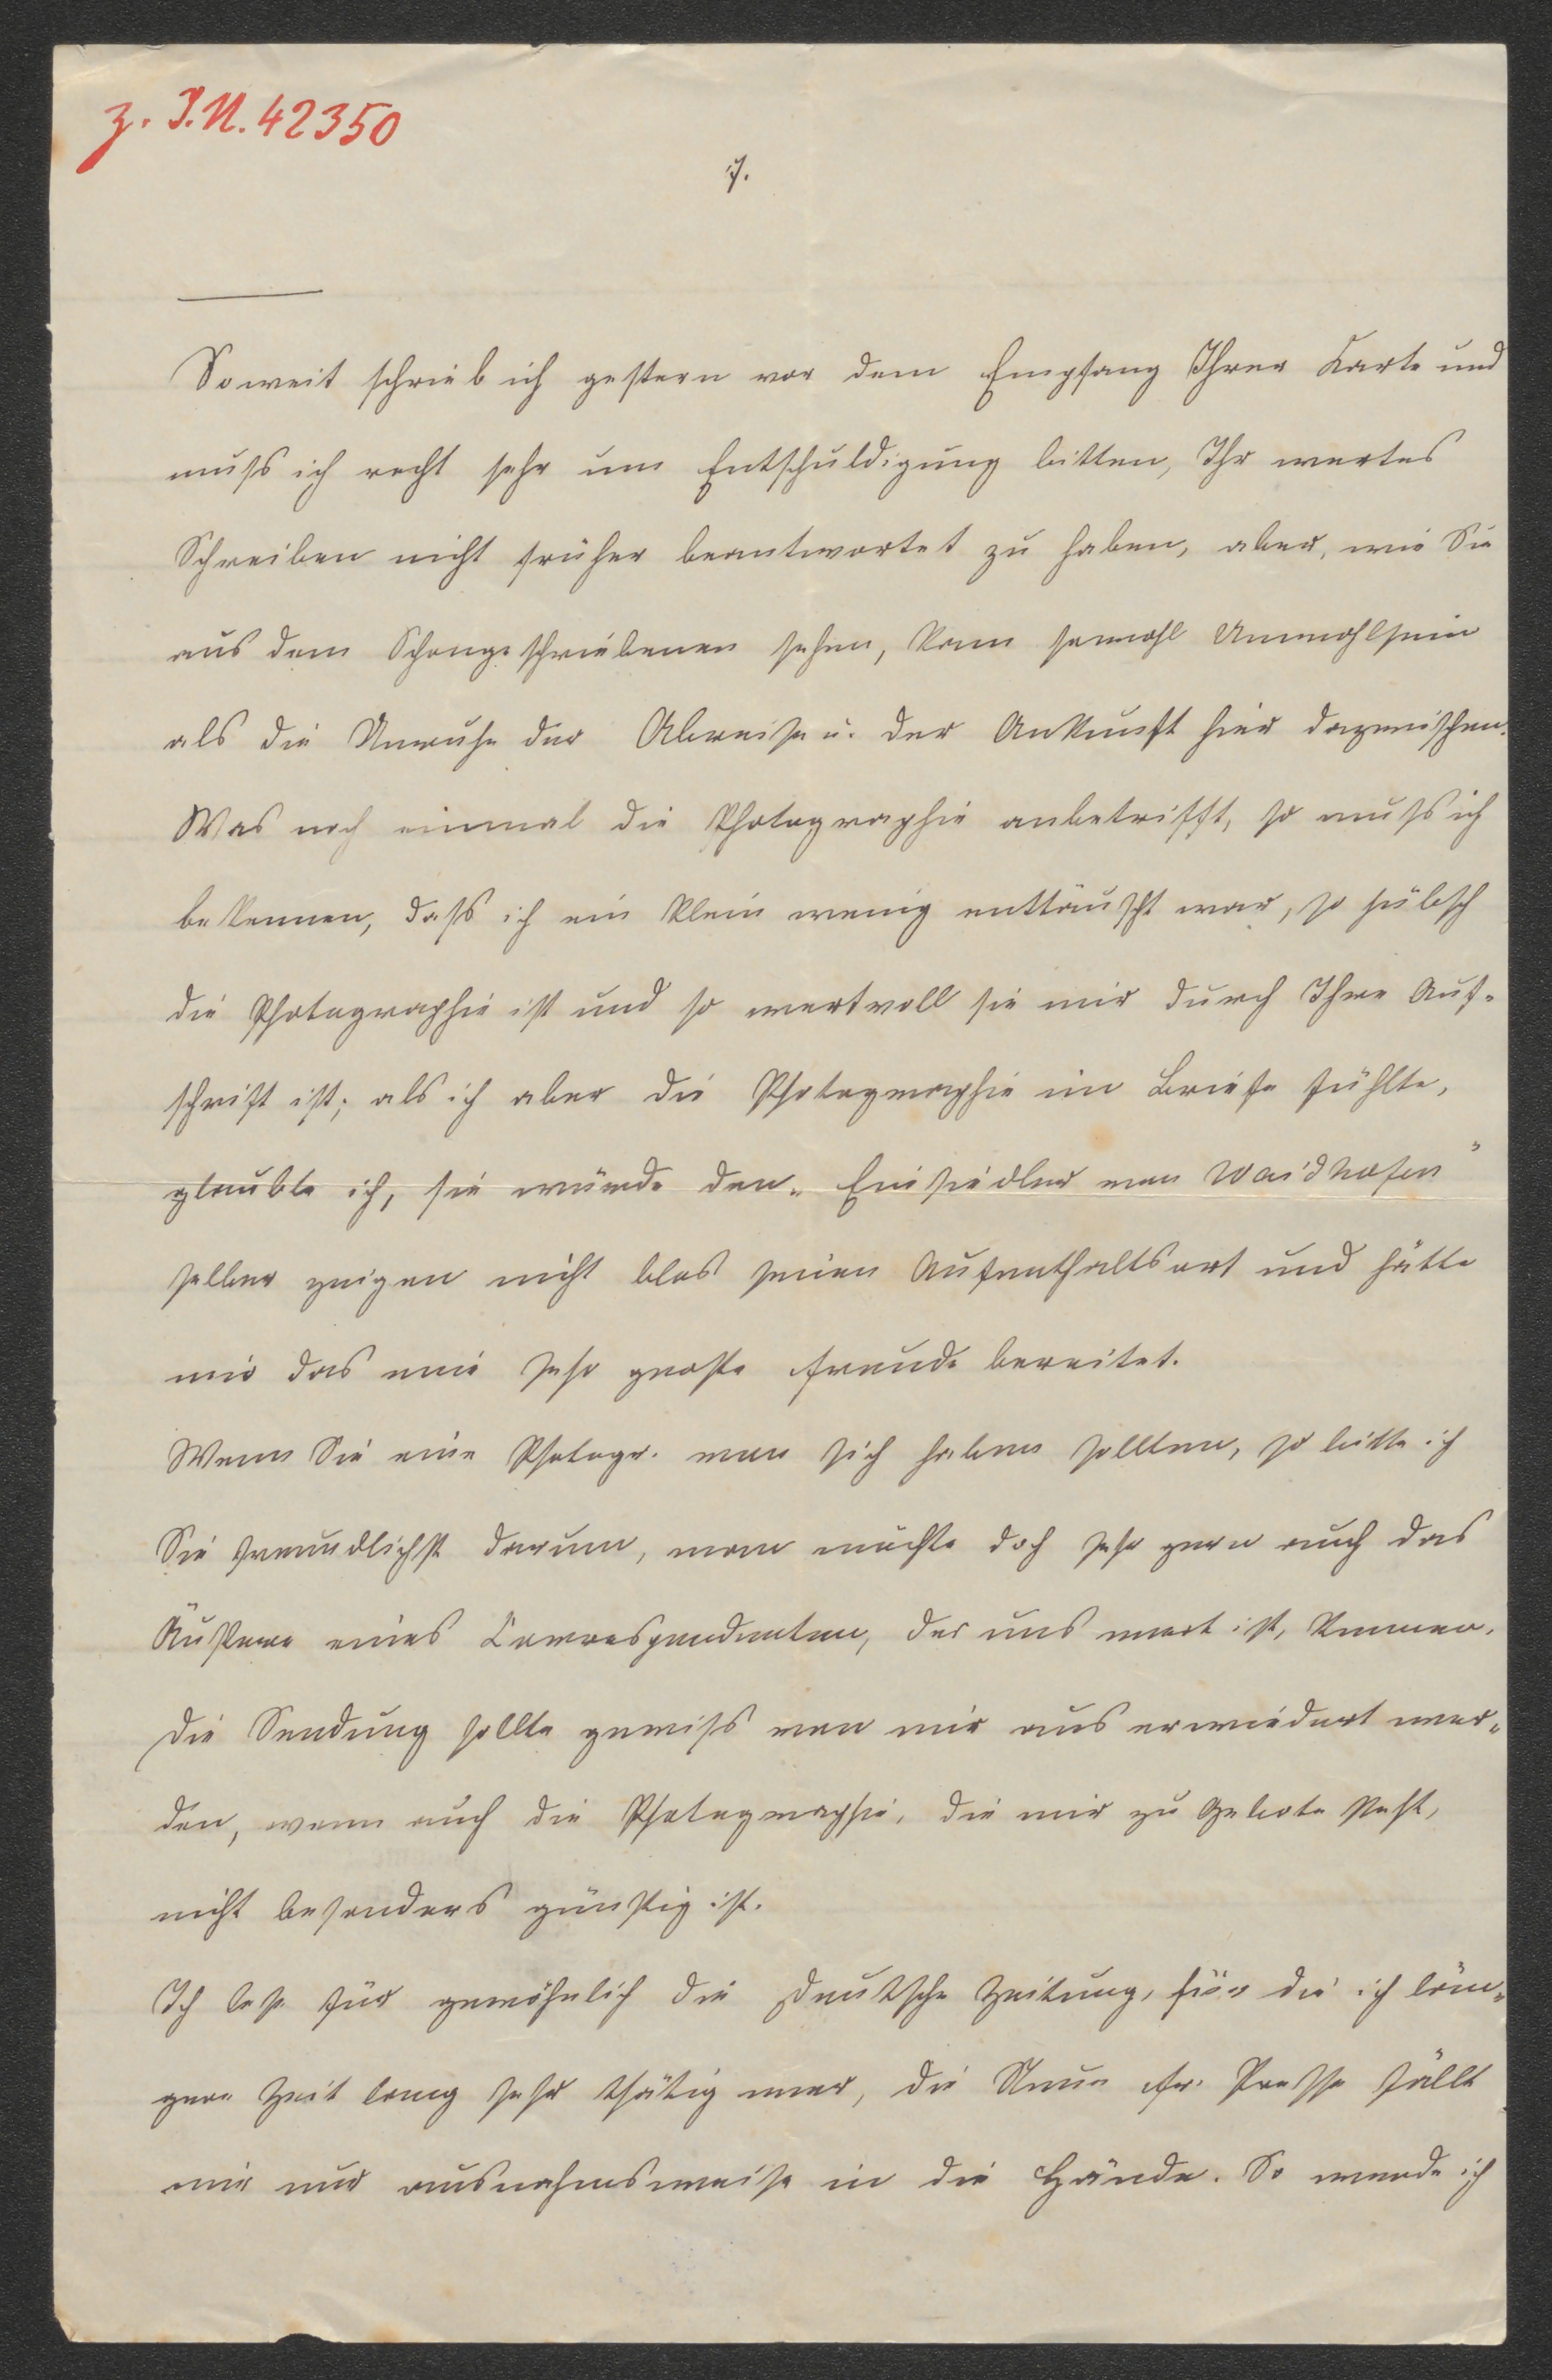 z. I.N. 42350
7.
Soweit schrieb ich gestern vor dem Empfang Ihrer Karte und
muss ich recht sehr um Entschuldigung bitten, Ihr wertes
Schreiben nicht früher beantwortet zu haben, aber, wie Sie
aus dem Schongeschriebenen sehen, kam sowohl Unwohlsein
als die Unruhe der Abreise u. der Ankunft hier dazwischen.
Was noch einmal die Photographie anbetrifft, so muss ich
bekennen, dass ich ein klein wenig enttäuscht war, so hübsch
die Photographie ist und so wertvoll sie mir durch Ihre Auf-
schrift ist; als ich aber die Photographie im Briefe fühlte,
glaubte ich, sie würde den „Einsiedler von Waidhofen"
selber zeigen nicht blos seinen Aufenthaltsort und hätte
mir das eine sehr grosse Freude bereitet.
Wenn Sie eine Photogr. von sich haben sollten, so bitte ich
Sie freundlichst darum, man möchte doch sehr gern auch das
Äussere eines Correspondenten, der uns wert ist, kennen.
Die Sendung sollte gewiss von mir aus erwiedert wer-
den, wenn auch die Photographie, die mir zu Gebote steht,
nicht besonders günstig ist.
Ich lese für gewöhnlich die Deutsche Zeitung, für die ich län-
gere Zeit lang sehr thätig war, die Neue fr. Presse fällt
mir nur ausnahmsweise in die Hände. So werde ich